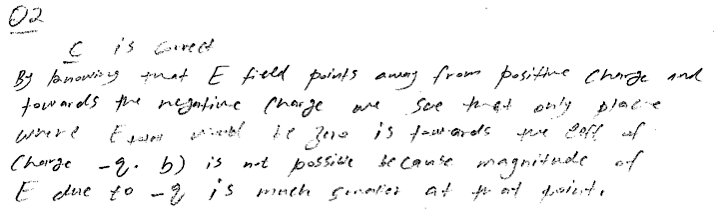 Q2
C is correct
By knowing that E field points away from positive charge and
towards the negative charge we see that only place
where E would be zero is towards the left of
charge -q. b) is not possible because magnitude of
E due to -q is much smaller at that point.